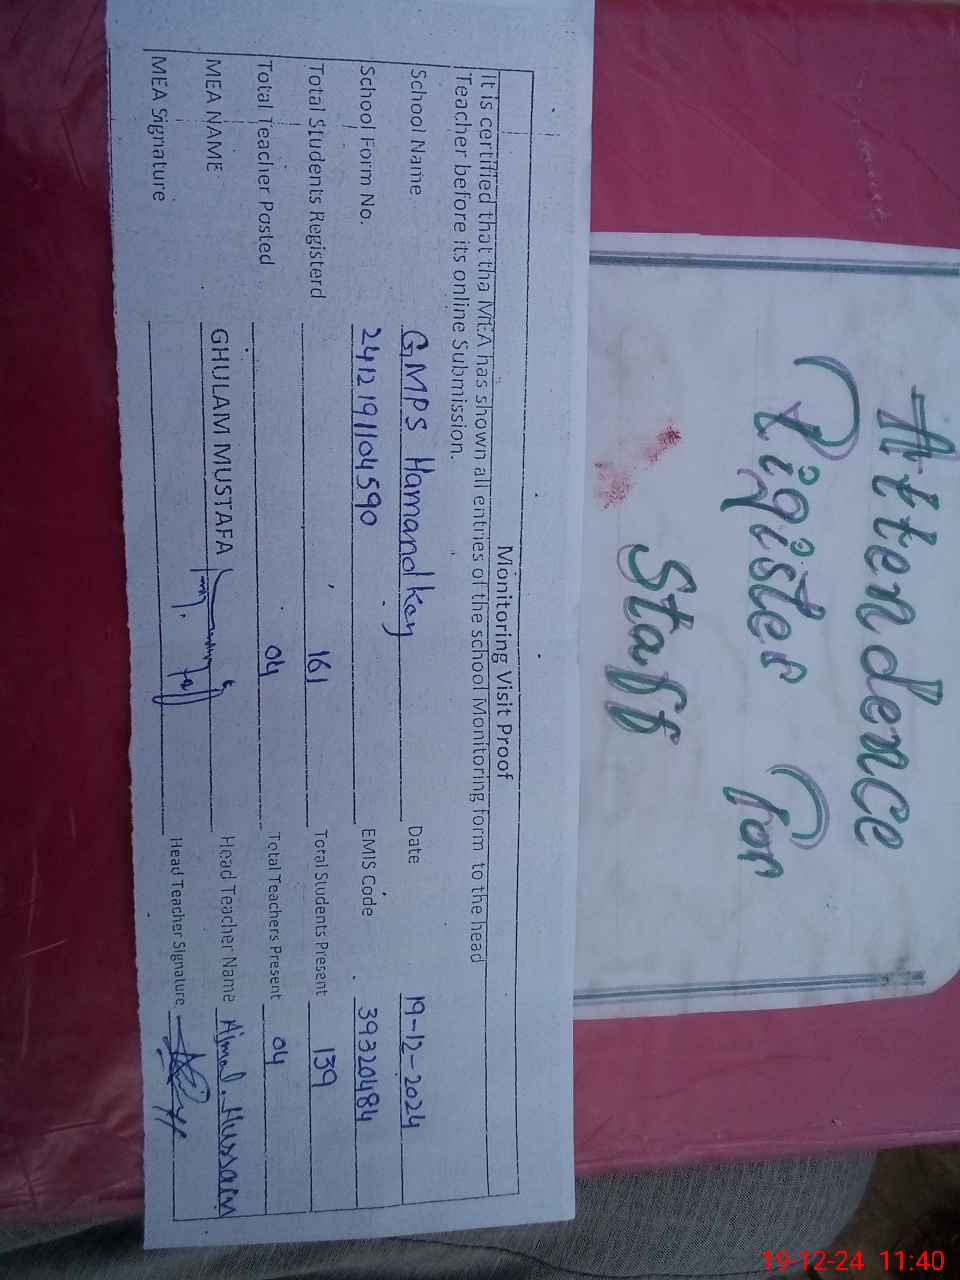 Attendence
Rigister For
Staff
Monitoring Visit Proof
It is certified that tha MEA has shown all entries of the school Monitoring form to the head
Teacher before its online Submission.
School Name GMPS Hamandkey Date 19-12-2024
School Form No. 2412191104590 EMIS Code 39320484
Total Students Registerd 161 Total Students Present 139
Total Teacher Posted 04 Total Teachers Present 04
MEA NAME GHULAM MUSTAFA Head Teacher Name Ajmal Hussain
MEA Signature Head Teacher Signature
19-12-24 11:40